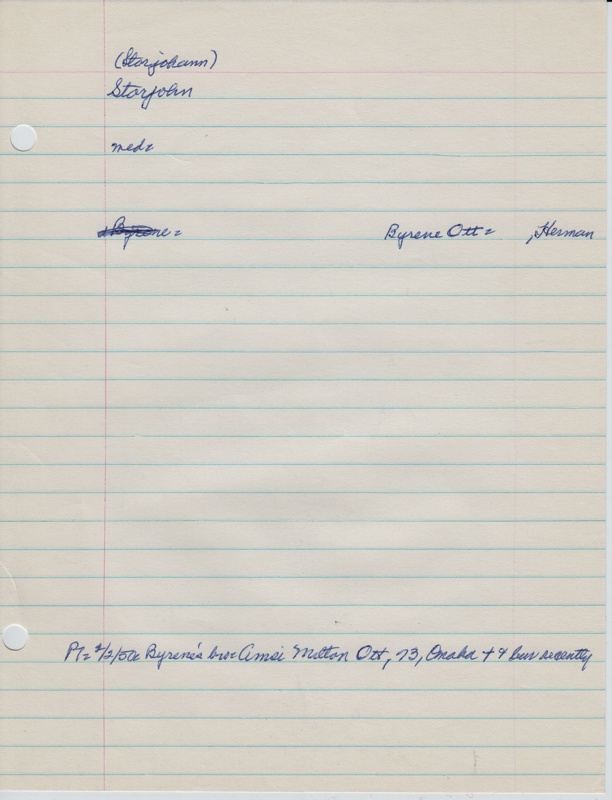 (Storjohann)
Storjohn
med=
Byrone= Byrene Ott= , Herman
Byrene's bro= Amsi Milton Ott, 73, Onaka + & bur recently